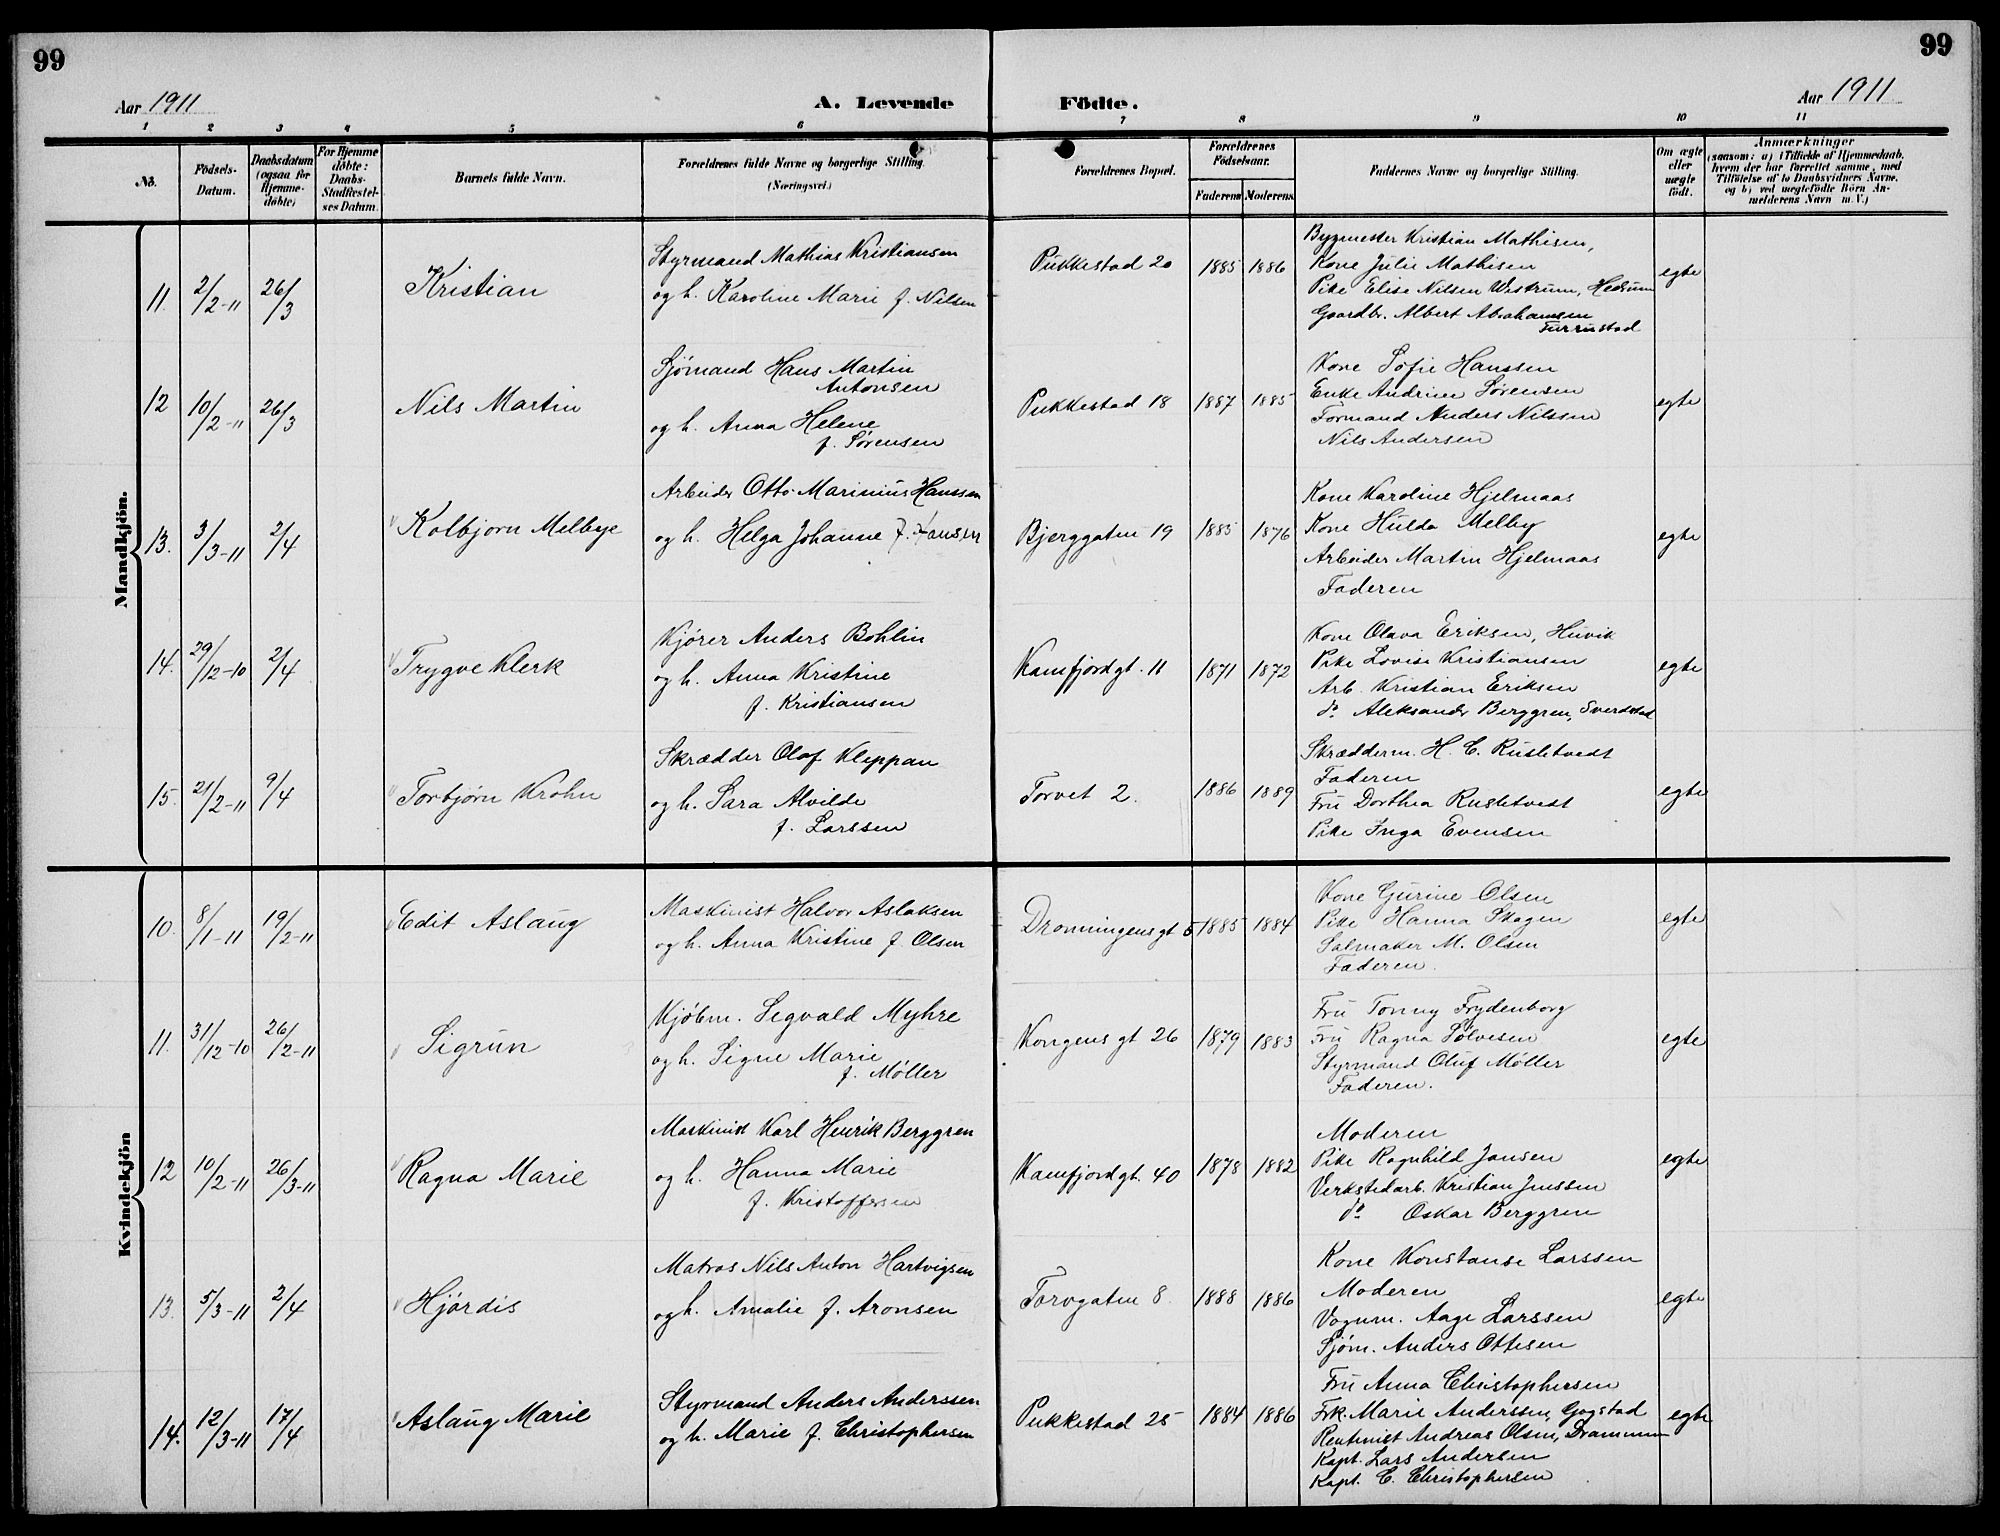 99
99
Aar 1911
A. Levende
Födte.
Aar 1911
1 2 3 4 5 6 7 8 9 10 11
No.
Födsels-Datum.
Daabsdatum (ogsaa for Hjemme-döbte)
For Hjemme döbte: Daabs-Stadfestel-ses Datum.
Barnets fulde Navn.
Forældrenes fulde Navne og borgerlige Stilling.
(Næringsvei.)
Forældrenes Bopæl.
Forældrenes Födselsaar.
Faderens
Moderens
Faddernes Navne og borgerlige Stilling.
Om ægte eller uægte födt.
Anmærkninger
(saasom: a) i Tilfælde af Hjemmedaab, hvem der har forrettet samme, med Tilföielse af to Daabsvidners Navne, og b) ved uægtefödte Börn An-melderens Navn m. V.)
Mandkjön.
11. 2/2-11 26/3 Kristian
Styrmand Mathias Kristiansen
og h. Karoline Marie f. Nilsen
Pukkestad 20 1885 1886
Bygmester Kristian Mathisen,
Kone Julie Mathisen
Pike Elise Nilsen Westrum, Hedrum
Gaardbr. Albert Abrahamsen
Furrustad
egte
12 10/2-11 26/3 Nils Martin
Sjømand Hans Martin
Antonsen
og h. Anna Helene
f. Sørensen
Pukkestad 18 1887 1885
Kone Sofie Hanssen
Enke Andrine Sørensen
Formand Anders Nilssen
Nils Andersen
egte
13. 3/3-11 2/4 Kolbjørn Melbye
Arbeider Otto Marinius Hanssen
og h. Helga Johanne f. Hansen
Bjerggaten 19 1885 1876
Kone Karoline Hjelmaas
Kone Hulda Melby
Arbeider Martin Hjelmaas
Faderen
egte
14. 29/12-10 2/4 Trygve Klerk
Kjører Anders Bohlin
og h. Anna Kristine
f. Kristiansen
Kamfjordgt. 11 1871 1872
Kone Olava Eriksen, Huvik
Pike Lovise Kristiansen
Arb. Kristian Eriksen
do Aleksander Berggren, Sverdstad
egte
15. 21/2-11 9/4 Torbjørn Krohn
Skrædder Olaf Kleppan
og h. Sara Alvilde
f. Larssen
Torvet 2. 1886 1889
Skrædderm. H. C. Rustetvedt
Faderen
Fru Dorthea Rustetvedt
Pike Inga Evensen
egte
Kvindekjön
10. 8/1-11 19/2-11 Edit Aslaug
Maskinist Halvor Aslaksen
og h. Anna Kristine f. Olsen
Dronningensgt 5 1885 1884
Kone Gurine Olsen
Pike Hanna Skogen
Salmaker M. Olsen
Faderen.
egte
11. 31/12-10 26/2-11 Sigrun
Kjøbm. Segvald Myhre
og h. Signe Marie
f. Møller
Kongens gt 26 1879 1883
Fru Tonny Frydenborg
Fru Ragna Sølvesen
Styrmand Oluf Møller
Faderen.
egte
12 10/2-11 26/3-11 Ragna Marie
Maskinist Karl Henrik Berggren
og h. Hanna Marie
f. Kristoffersen
Kamfjordgt. 40 1878 1882
Moderen
Pike Ragnhild Jansen
Verkstedarb. Kristian Jenssen
do Oskar Berggren
egte
13. 5/3-11 2/4 Hjørdis
Matros Nils Anton Hartvigsen
og h. Amalie f. Aronsen
Torvgaten 8. 1888 1886
Kone Konstanse Larssen
Moderen
Vognm. Aage Larssen
Sjøm. Anders Ottesen
egte
14. 12/3-11 17/4 Aslaug Marie
Styrmand Anders Anderssen
og h. Marie f. Christophersen
Pukkestad 25 1884 1886
Fru Anna Christophersen
Frk. Marie Anderssen, Gogstad
Rentenist Andreas Olsen, Drammen
Kapt. Lars Andersen
Kapt. C. Christophersen
egte